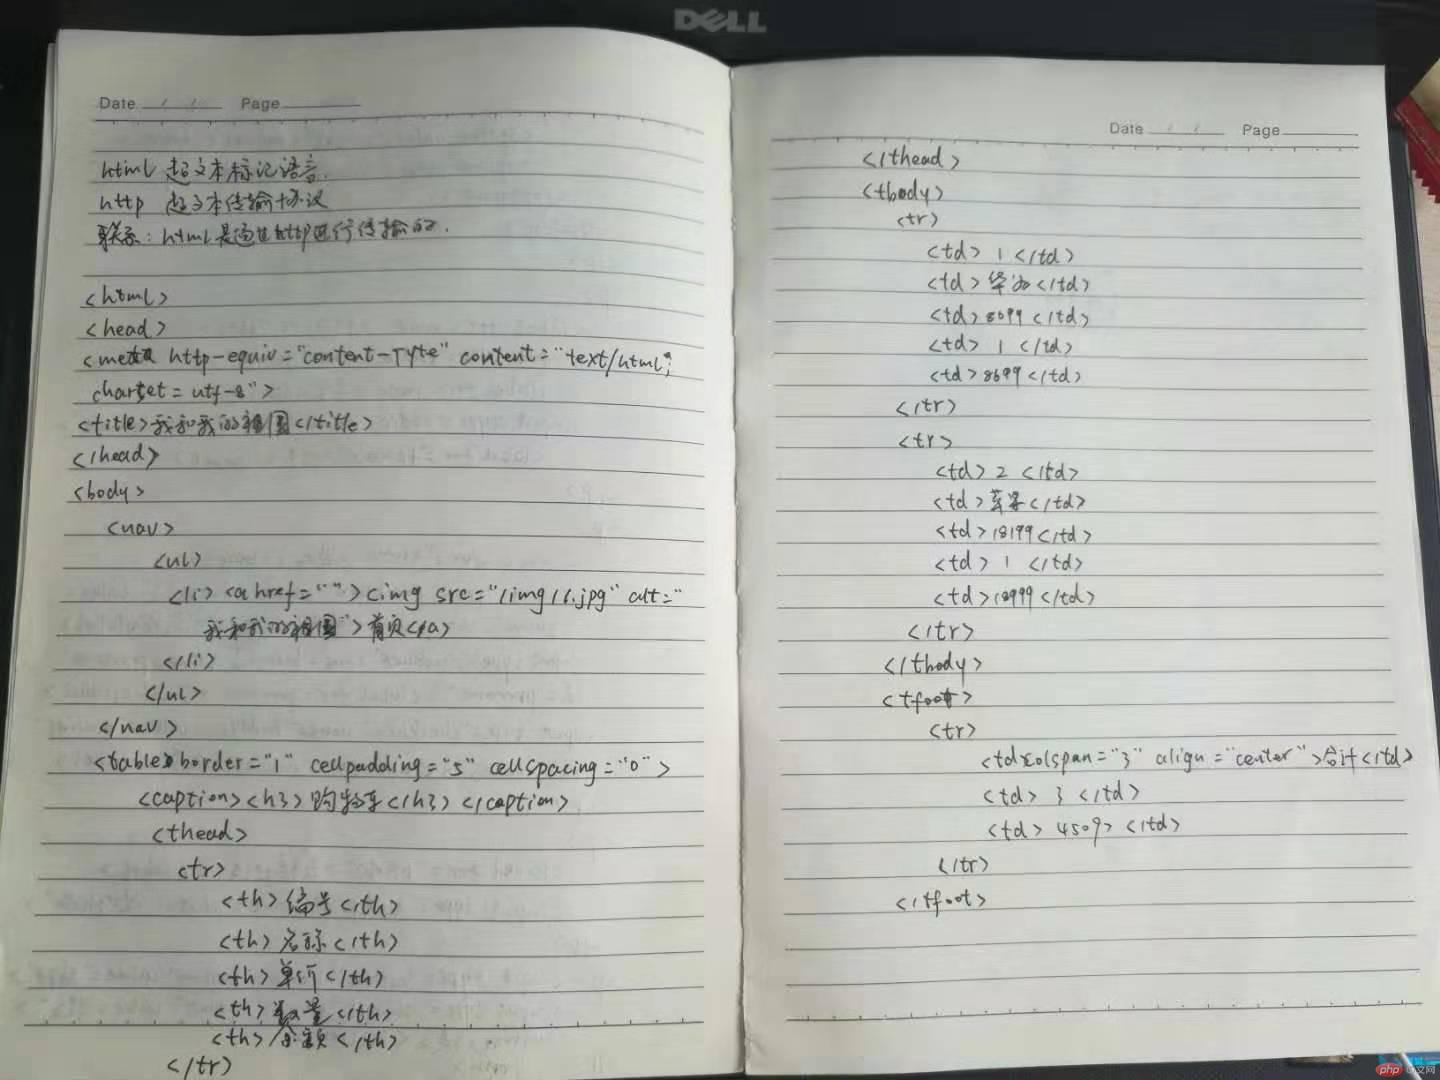 DELL
Date / / Page
html 超文本标记语言.
http 超文本传输协议
联系: html是通过http进行传输的.
<html>
<head>
<meta http-equiv="content-Tyte" content="text/html;
charset=utf-8">
<title>我和我的祖国</title>
</head>
<body>
<nav>
<ul>
<li><a href=""><img src="/img/1.jpg" alt="
我和我的祖国">首页</a>
</li>
</ul>
</nav>
<table border="1" cellpadding="5" cellspacing="0">
<caption><h3>购物车</h3></caption>
<thead>
<tr>
<th>编号</th>
<th>名称</th>
<th>单价</th>
<th>数量</th>
<th>金额</th>
</tr>
Date / / Page
</thead>
<tbody>
<tr>
<td>1</td>
<td>华为</td>
<td>8099</td>
<td>1</td>
<td>8699</td>
</tr>
<tr>
<td>2</td>
<td>苹果</td>
<td>18199</td>
<td>1</td>
<td>18999</td>
</tr>
</tbody>
<tfoot>
<tr>
<td colspan="3" align="center">合计</td>
<td>3</td>
<td>4509></td>
</tr>
</tfoot>
php中文网